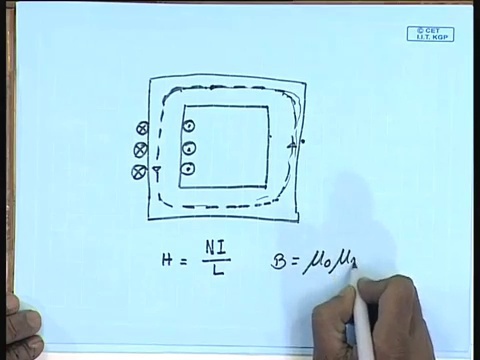 © CET
I.I.T. KGP
H = NI / L B = μ₀ μ